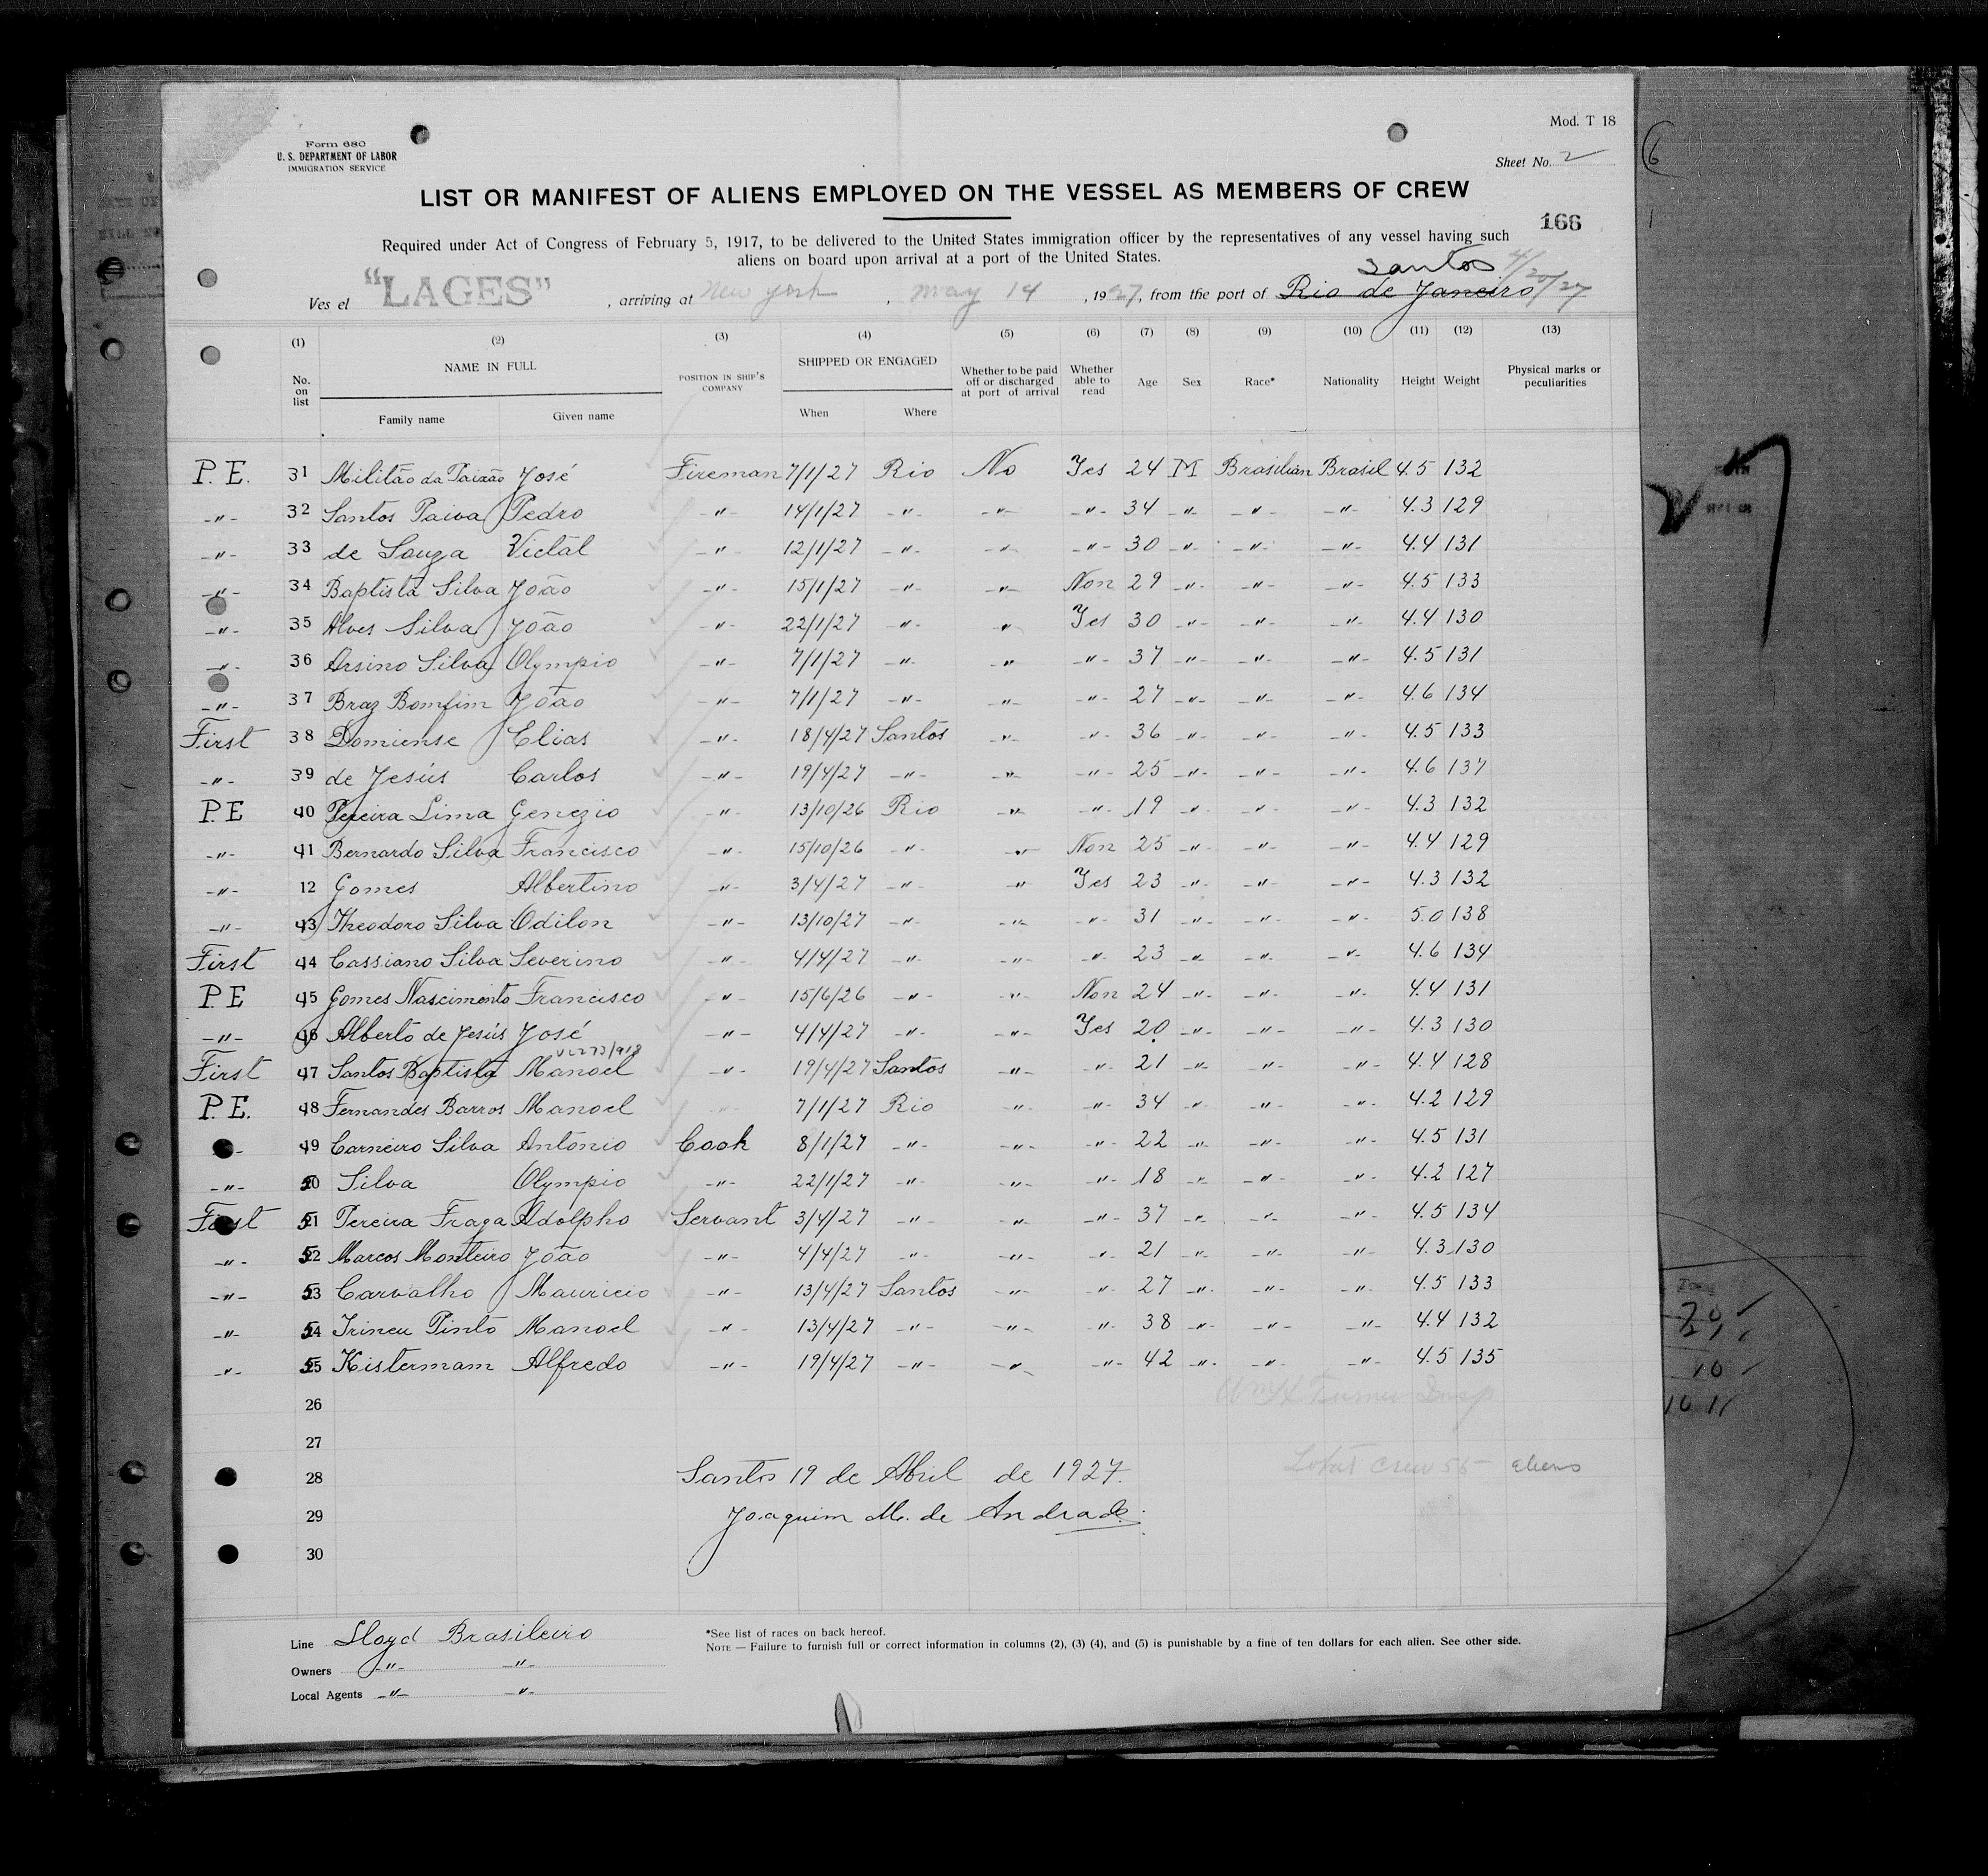 Mod. T 18
Form 680
U. S. DEPARTMENT OF LABOR
IMMIGRATION SERVICE
Sheet No. 2
LIST OR MANIFEST OF ALIENS EMPLOYED ON THE VESSEL AS MEMBERS OF CREW
166
Required under Act of Congress of February 5, 1917, to be delivered to the United States immigration officer by the representatives of any vessel having such
aliens on board upon arrival at a port of the United States.
Santos 4/20/27
Ves el "LAGES", arriving at New York, May 14, 1927, from the port of Rio de Janeiro
(1) (2) (3) (4) (5) (6) (7) (8) (9) (10) (11) (12) (13)
No. on list NAME IN FULL Family name Given name POSITION IN SHIP'S COMPANY SHIPPED OR ENGAGED When Where Whether to be paid off or discharged at port of arrival Whether able to read Age Sex Race* Nationality Height Weight Physical marks or peculiarities
P.E. 31 Militão da Paixão José Fireman 7/1/27 Rio No Yes 24 M Brasilian Brasil 4.5 132
-"- 32 Santos Paiva Pedro -"- 14/1/27 -"- -"- -"- 34 -"- -"- -"- 4.3 129
-"- 33 de Souza Victal -"- 12/1/27 -"- -"- -"- 30 -"- -"- -"- 4.4 131
-"- 34 Baptista Silva João -"- 15/1/27 -"- -"- Non 29 -"- -"- -"- 4.5 133
-"- 35 Alves Silva João -"- 22/1/27 -"- -"- Yes 30 -"- -"- -"- 4.4 130
-"- 36 Arsino Silva Olympio -"- 7/1/27 -"- -"- -"- 37 -"- -"- -"- 4.5 131
-"- 37 Braz Bomfim João -"- 7/1/27 -"- -"- -"- 27 -"- -"- -"- 4.6 134
First 38 Domiense Elias -"- 18/4/27 Santos -"- -"- 36 -"- -"- -"- 4.5 133
-"- 39 de Jesús Carlos -"- 19/4/27 -"- -"- -"- 25 -"- -"- -"- 4.6 137
P.E 40 Pereira Lima Genezio -"- 13/10/26 Rio -"- -"- 19 -"- -"- -"- 4.3 132
-"- 41 Bernardo Silva Francisco -"- 15/10/26 -"- -"- Non 25 -"- -"- -"- 4.4 129
-"- 12 Gomes Albertino -"- 3/4/27 -"- -"- Yes 23 -"- -"- -"- 4.3 132
-"- 43 Theodoro Silva Odilon -"- 13/10/27 -"- -"- -"- 31 -"- -"- -"- 5.0 138
First 44 Cassiano Silva Severino -"- 4/4/27 -"- -"- -"- 23 -"- -"- -"- 4.6 134
P.E 45 Gomes Nascimento Francisco -"- 15/6/26 -"- -"- Non 24 -"- -"- -"- 4.4 131
-"- 46 Alberto de Jesús José -"- 4/4/27 -"- -"- Yes 20 -"- -"- -"- 4.3 130
First 47 Santos Baptista Manoel -"- 19/4/27 Santos -"- -"- 21 -"- -"- -"- 4.4 128
P.E. 48 Fernandes Barros Manoel -"- 7/1/27 Rio -"- -"- 34 -"- -"- -"- 4.2 129
49 Carneiro Silva Antonio Cook 8/1/27 -"- -"- -"- 22 -"- -"- -"- 4.5 131
-"- 50 Silva Olympio -"- 22/1/27 -"- -"- -"- 18 -"- -"- -"- 4.2 127
First 51 Pereira Fraga Adolpho Servant 3/4/27 -"- -"- -"- 37 -"- -"- -"- 4.5 134
-"- 52 Marcos Monteiro João -"- 4/4/27 -"- -"- -"- 21 -"- -"- -"- 4.3 130
-"- 53 Carvalho Mauricio -"- 13/4/27 Santos -"- -"- 27 -"- -"- -"- 4.5 133
-"- 54 Irineu Pinto Manoel -"- 13/4/27 -"- -"- -"- 38 -"- -"- -"- 4.4 132
-"- 55 Kistermam Alfredo -"- 19/4/27 -"- -"- -"- 42 -"- -"- -"- 4.5 135
26
27
28 Santos 19 de Abril de 1927. Total crew 55 aliens
29 Joaquim M. de Andrade
30
Line Lloyd Brasileiro
Owners -"- -"-
Local Agents -"- -"-
*See list of races on back hereof.
NOTE — Failure to furnish full or correct information in columns (2), (3) (4), and (5) is punishable by a fine of ten dollars for each alien. See other side.